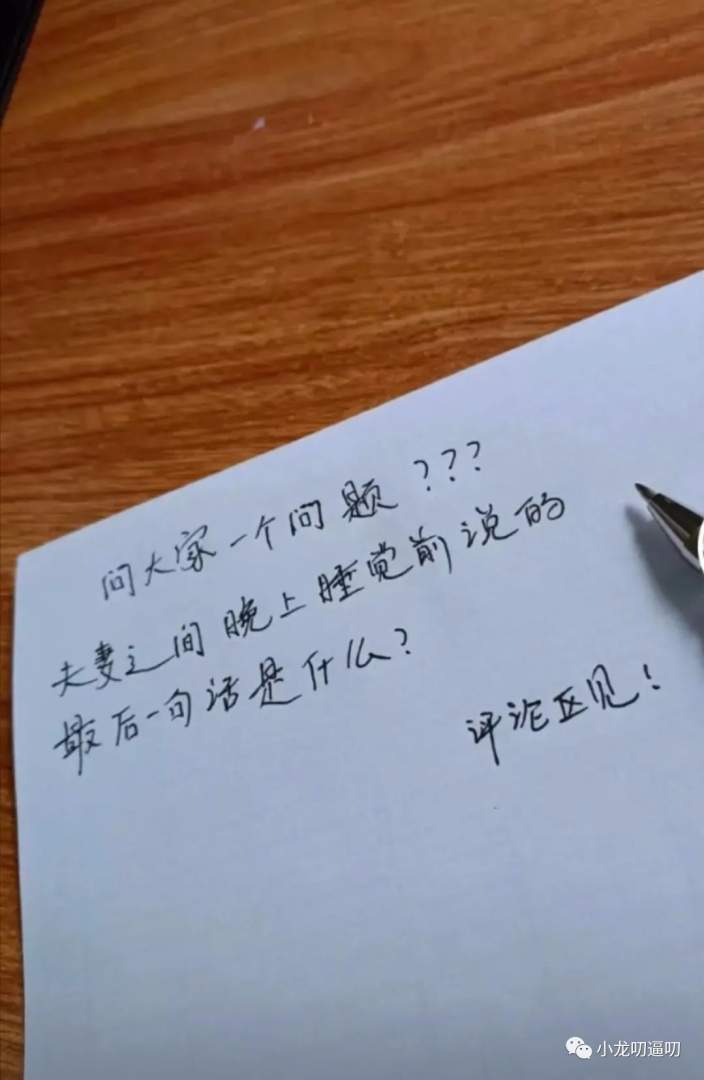 问大家一个问题???
夫妻之间晚上睡觉前说的
最后一句话是什么?
评论区见!
小龙叨逼叨